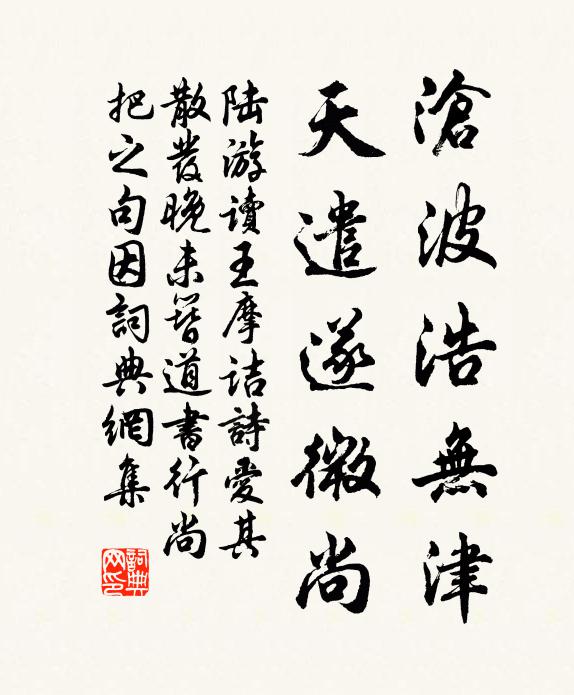 滄波浩無津
天遣遂微尚
陸游讀王摩詰詩愛其
散發晚未簪道書行尚
把之句因詞典網集
詞典網印